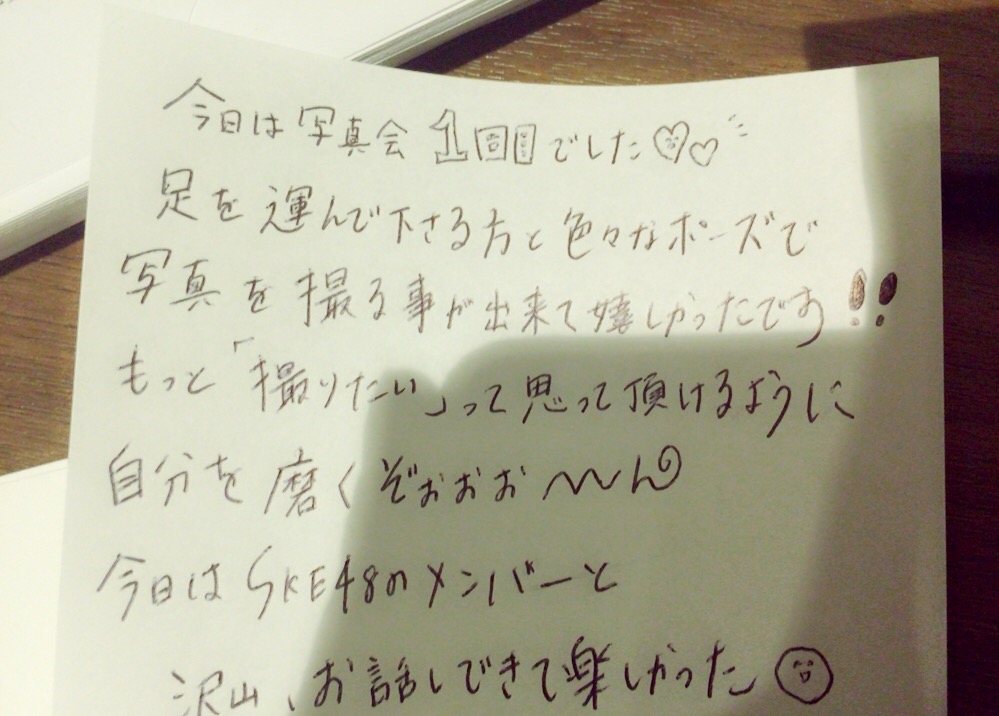 今日は写真会1回目でした♡♡
足を運んで下さる方と色々なポーズで
写真を撮る事が出来て嬉しかったです!!
もっと「撮りたい」って思って頂けるように
自分を磨くぞぉぉぉ〜〜ん
今日はSKE48のメンバーと
沢山、お話しできて楽しかった